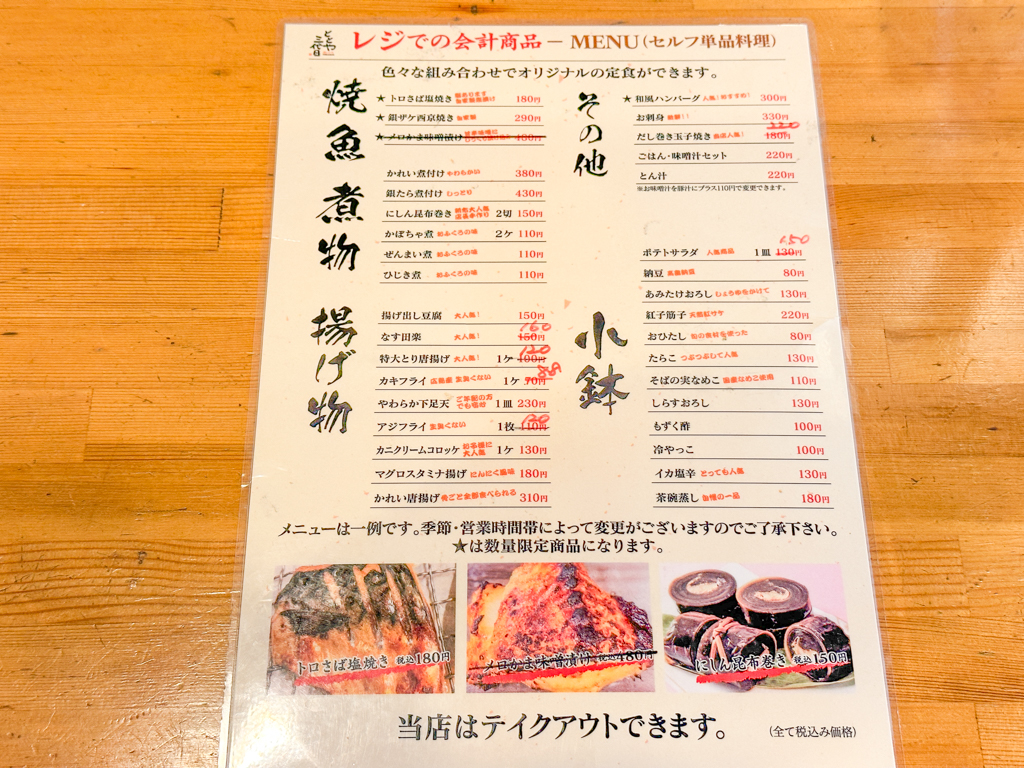 ととや
三代目
レジでの会計商品－ MENU(セルフ単品料理)
色々な組み合わせでオリジナルの定食ができます。
焼魚
★トロさば塩焼き 180円
★銀ザケ西京焼き 自家製 290円
★メロかま味噌漬け 480円
煮物
かれい煮付け やわらかい 380円
銀たら煮付け しっとり 430円
にしん昆布巻き 2切 150円
かぼちゃ煮 おふくろの味 2ケ 110円
ぜんまい煮 おふくろの味 110円
ひじき煮 おふくろの味 110円
揚げ物
揚げ出し豆腐 大人気! 150円
なす田楽 大人気! 150円 160
特大とり唐揚げ 大人気! 1ケ 100円 120
カキフライ 広島産 生臭くない 1ケ 70円 88
やわらか下足天 ご年配の方でも噛め 1皿 230円
アジフライ 生臭くない 1枚 110円 120
カニクリームコロッケ お子様に大人気 1ケ 130円
マグロスタミナ揚げ にんにく風味 180円
かれい唐揚げ 骨ごと全部食べられる 310円
その他
★和風ハンバーグ 人気!おすすめ! 300円
お刺身 新鮮!! 330円
だし巻き玉子焼き 当店人気! 180円 220
ごはん・味噌汁セット 220円
とん汁 220円
※お味噌汁を豚汁にプラス110円で変更できます。
小鉢
ポテトサラダ 人気商品 1皿 130円 150
納豆 80円
あみたけおろし しょうゆをかけて 130円
紅子筋子 天然紅サケ 220円
おひたし 旬の食材を使った 80円
たらこ つぶつぶして人気 130円
そばの実なめこ 国産なめこ使用 110円
しらすおろし 130円
もずく酢 100円
冷やっこ 100円
イカ塩辛 とっても人気 130円
茶碗蒸し 自慢の一品 180円
メニューは一例です。季節・営業時間帯によって変更がございますのでご了承下さい。
★は数量限定商品になります。
トロさば塩焼き 税込180円
メロかま味噌漬け 税込480円
にしん昆布巻き 税込150円
当店はテイクアウトできます。
(全て税込み価格)